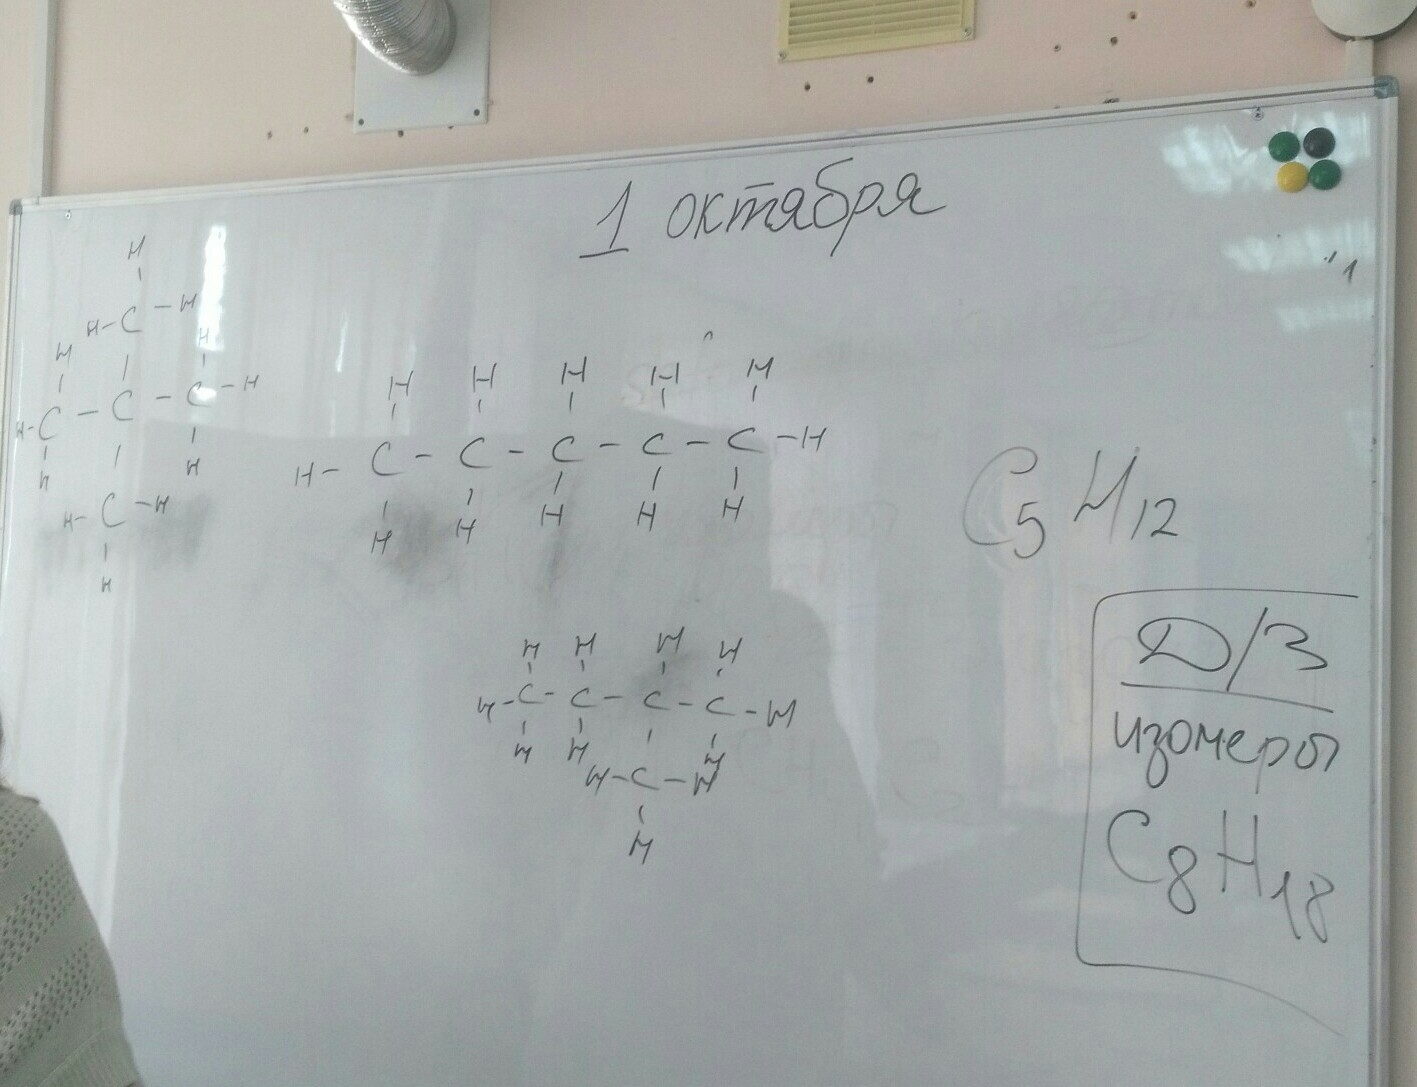 1 октября
H
H-C-H
H H
H-C-C-C-H
H H
H-C-H
H
H H H H H
H-C-C-C-C-C-H
H H H H H
C5H12
H H H H
H-C-C-C-C-H
H H H
H-C-H
H
Д/З
изомеры
C8H18